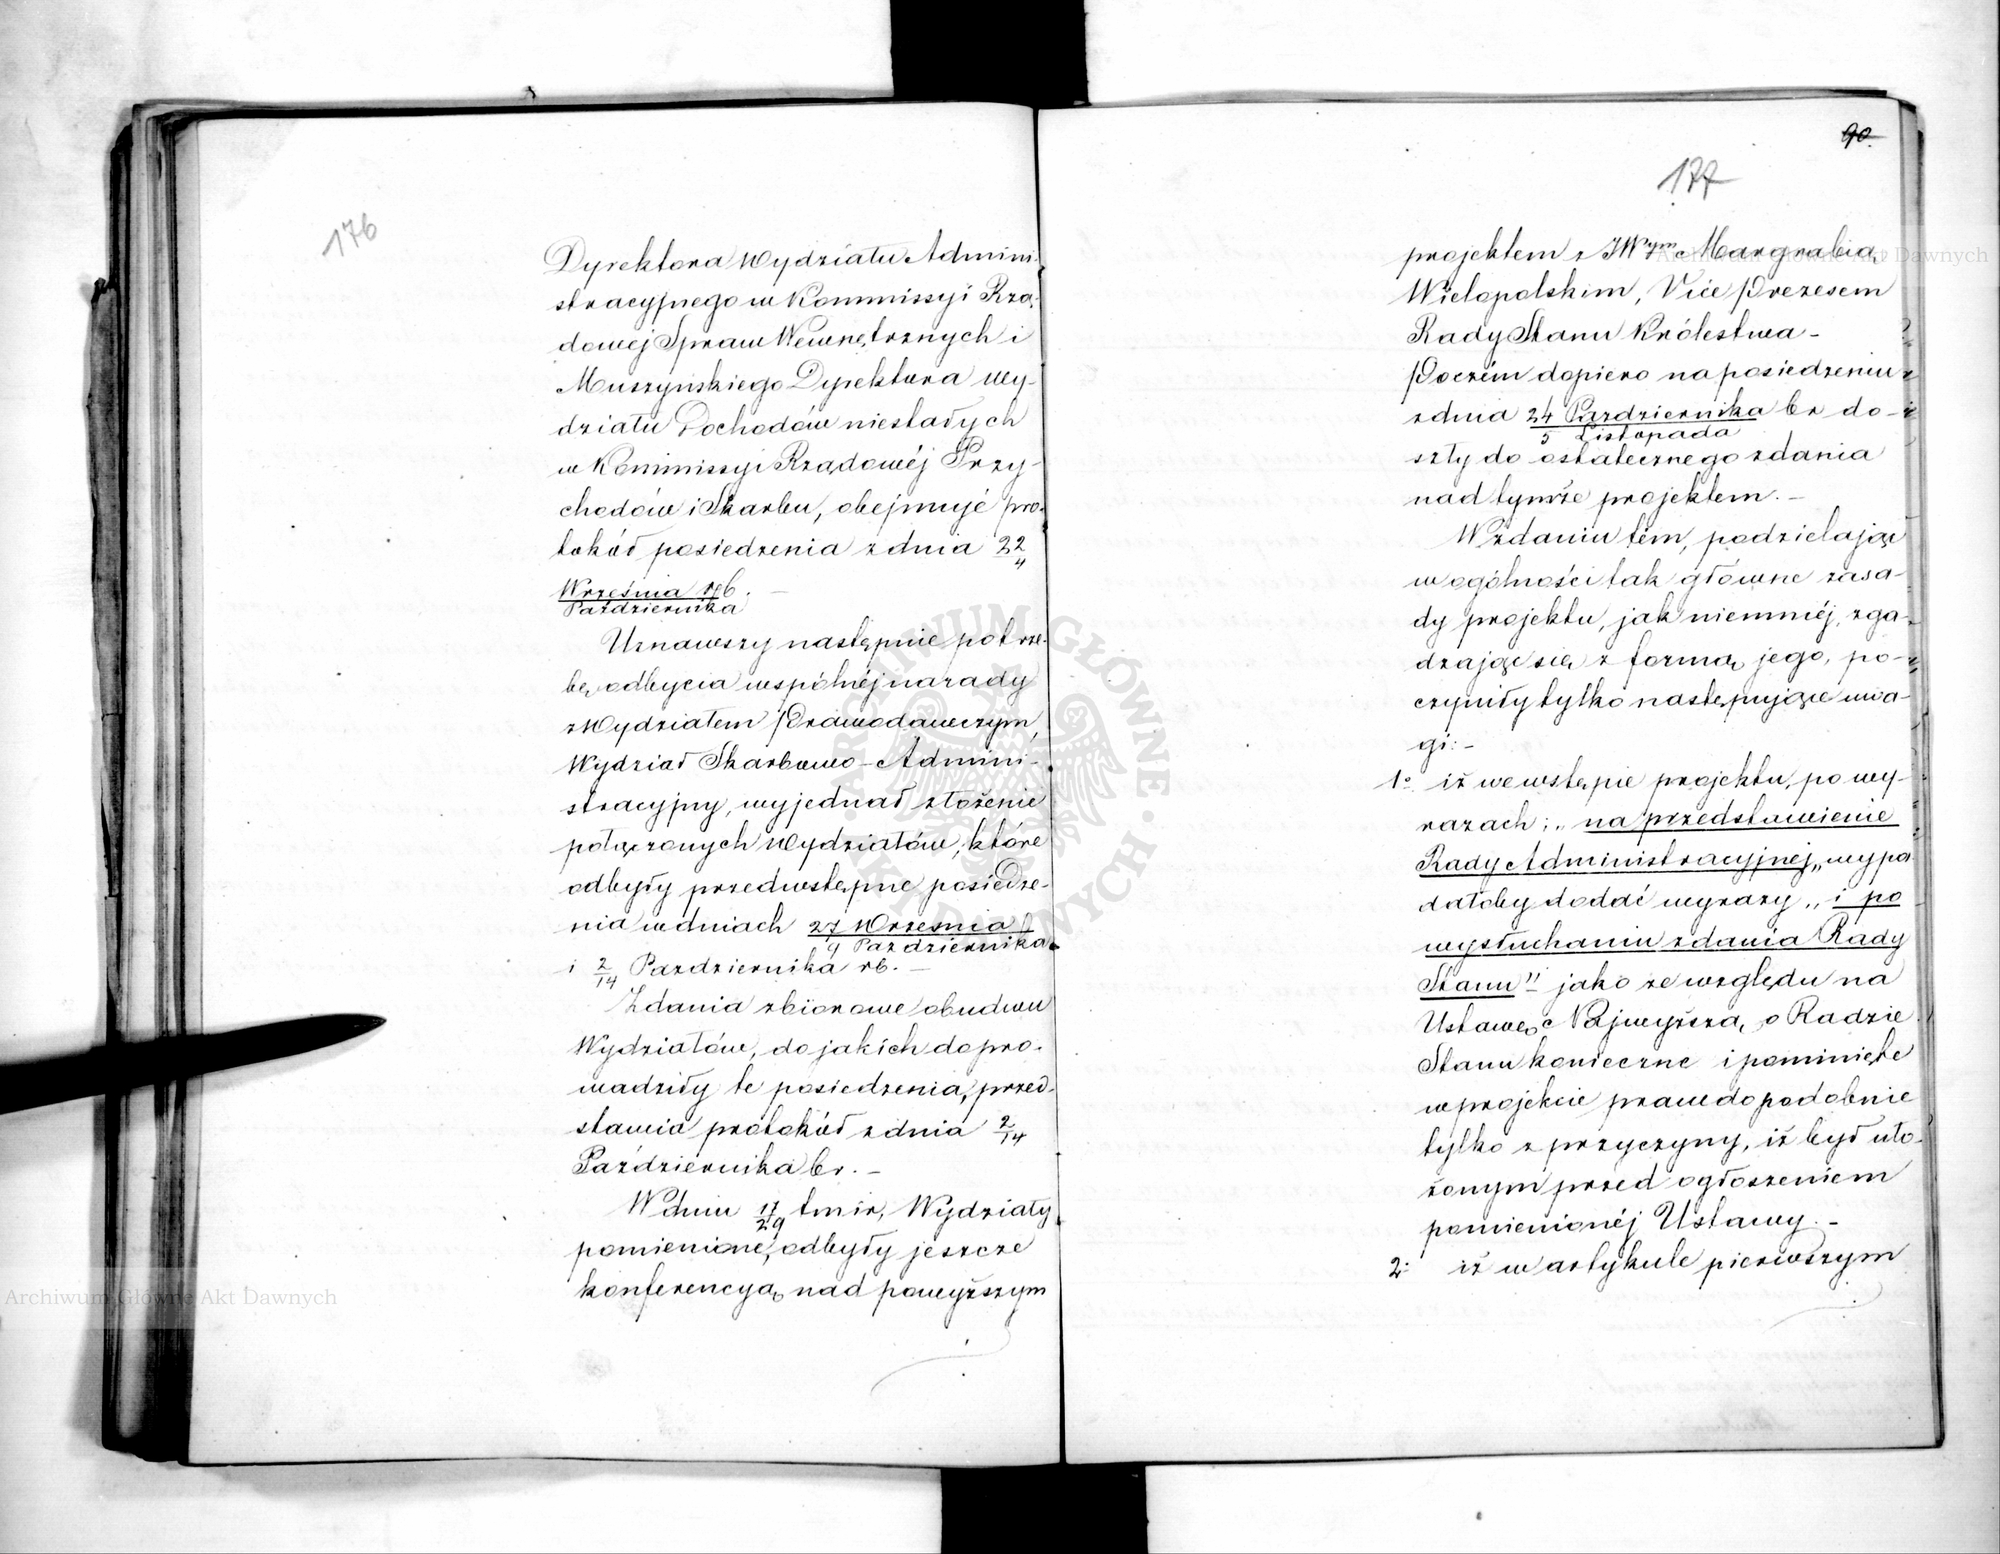 176
Dyrektora Wydziału Admini-
stracyjnego w Kommissyi Rzą-
dowej Spraw Wewnętrznych i
Muszyńskiego Dyrektora Wy-
działu Dochodów niestałych
w Kommissyi Rządowéj Przy-
chodów i Skarbu, obejmuje pro-
tokół posiedzenia z dnia 22/4
Września rb.
Października
Uznawszy następnie potrze-
bę odbycia wspólnéj narady
z Wydziałem Prawodawczym,
Wydział Skarbowo-Admini-
stracyjny, wyjednał złożenie
połączonych Wydziałów, które
odbyły przedwstępne posiedze-
nia w dniach 27 Września
9 Października
i 2/14 Października rb. —
Zdania zbiorowe obudwu
Wydziałów, do jakich dopro-
wadziły te posiedzenia, przed-
stawia protokół z dnia 2/14
Października br. —
W dniu 17/29 tm i r, Wydziały
pomienione, odbyły jeszcze
konferencyą nad powyższym
90.
177
projektem z JWym Margrabią
Wielopolskim, Vice Prezesem
Rady Stanu Królestwa —
Poczém dopiero na posiedzeniu
z dnia 24 Października br do-
5 Listopada
szły do ostatecznego zdania
nad tymże projektem. —
W zdaniu tém, podzielając
w ogólności tak główne zasa-
dy projektu, jak niemniéj, zga-
dzając się z formą jego, po-
czyniły tylko następujące uwa-
gi: —
1o iż we wstępie projektu, po wy-
razach: „na przedstawienie
Rady Administracyjnéj„ wypa
dałoby dodać wyrazy „i po
wysłuchaniu zdania Rady
Stanu" jako ze względu na
Ustawę Najwyższą o Radzie
Stanu konieczne i pominięte
w projekcie prawdopodobnie
tylko z przyczyny, iż był uło-
żonym przed ogłoszeniem
pomienionéj Ustawy. —
2o iż w artykule pierwszym
Archiwum Główne Akt Dawnych
Archiwum Główne Akt Dawnych
ARCHIWUM GŁÓWNE AKT DAWNYCH